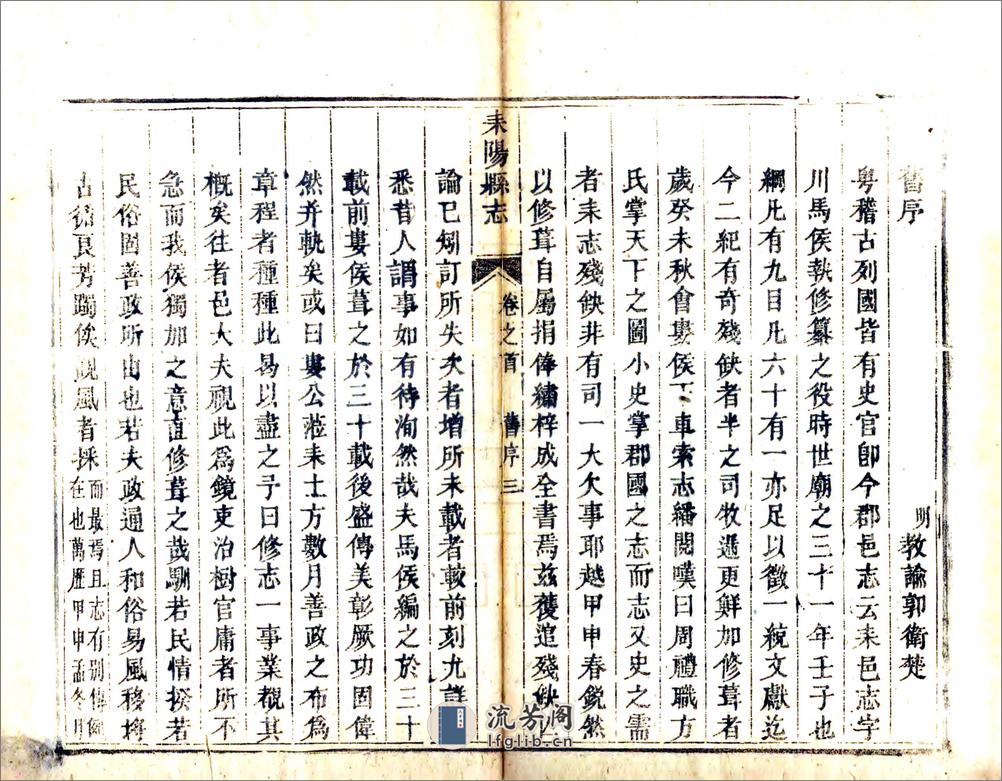 舊序
明 教諭郭衛楚
粤稽古列國皆有史官卽今郡邑志云耒邑志字
川馬侯執修纂之役時世廟之三十一年壬子也
綱凡有九目凡六十有一亦足以徵一統文獻迄
今二紀有奇殘缺者半之司牧遞更鮮加修葺者
歲癸未秋會婁侯下車索志繙閱嘆曰周禮職方
氏掌天下之圖小史掌郡國之志而志又史之需
者耒志殘缺非有司一大欠事耶越甲申春銳然
以修葺自屬捐俸繡梓成全書焉茲獲追殘缺
耒陽縣志 卷之首 舊序 三
論已剜訂所失次者增所未載者較前刻尤詳
悉昔人謂事如有待洵然哉夫馬侯編之於三十
載前婁侯葺之於三十載後盛傳美彰厥功固偉
然并軌矣或曰婁公蒞耒士方數月善政之布爲
章程者種種此易以盡之予曰修志一事業覩其
概矣往者邑大夫視此爲鏡吏治櫥官庸者所不
急而我侯獨加之意直修葺之哉馴若民情揆若
民俗固善政所由也若夫政通人和俗易風移
古循良芳躅俟觀風者採
而最焉且志有別傳
在也萬歷甲申孟冬月
流芳阁
lfglib.cn